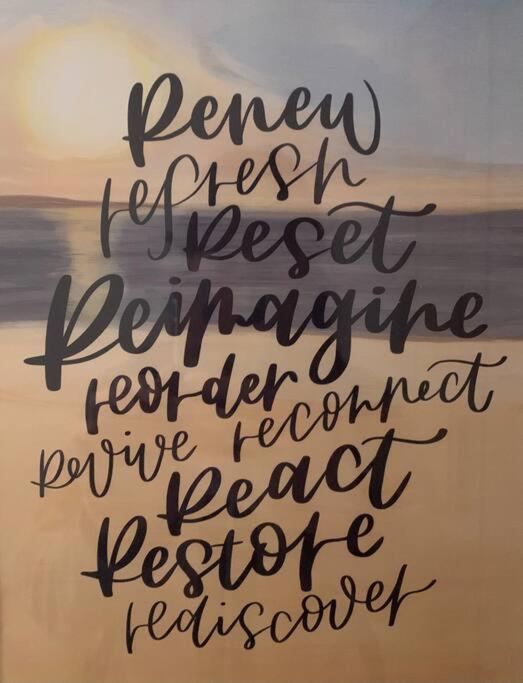 Renew
refresh
Reset
Reimagine
reorder
Revive reconnect
React
Restore
rediscover